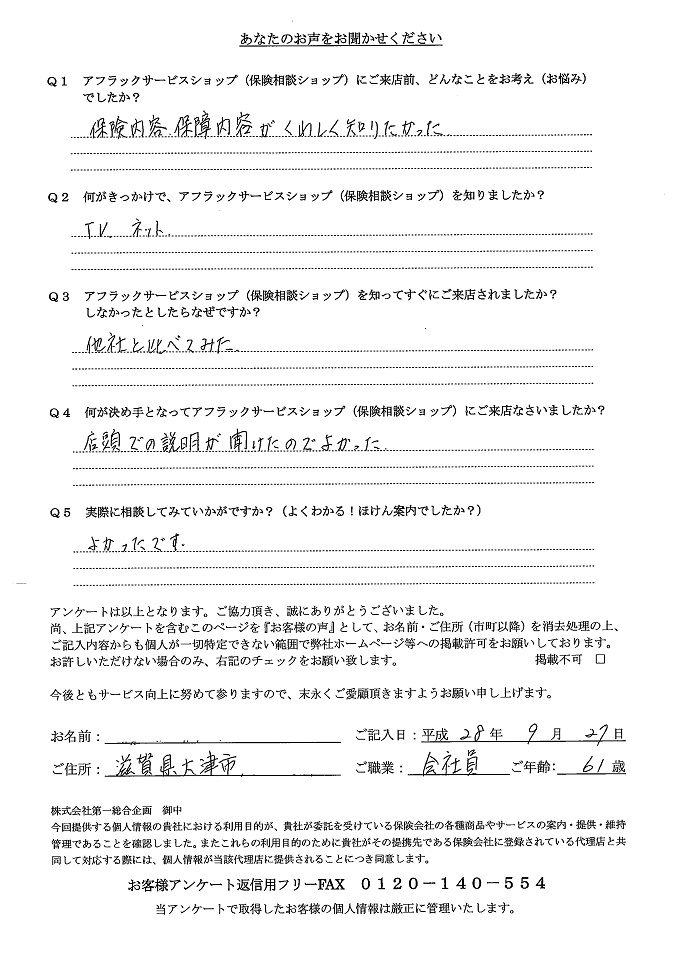 あなたのお声をお聞かせください
Q1 アフラックサービスショップ（保険相談ショップ）にご来店前、どんなことをお考え（お悩み）
でしたか？
保険内容、保障内容がくわしく知りたかった
Q2 何がきっかけで、アフラックサービスショップ（保険相談ショップ）を知りましたか？
TV、ネット.
Q3 アフラックサービスショップ（保険相談ショップ）を知ってすぐにご来店されましたか？
しなかったとしたらなぜですか？
他社と比べてみた.
Q4 何が決め手となってアフラックサービスショップ（保険相談ショップ）にご来店なさいましたか？
店頭での説明が聞けたのでよかった.
Q5 実際に相談してみていかがですか？（よくわかる！ほけん案内でしたか？）
よかったです.
アンケートは以上となります。ご協力頂き、誠にありがとうございました。
尚、上記アンケートを含むこのページを『お客様の声』として、お名前・ご住所（市町以降）を消去処理の上、
ご記入内容からも個人が一切特定できない範囲で弊社ホームページ等への掲載許可をお願いしております。
お許しいただけない場合のみ、右記のチェックをお願い致します。 掲載不可 □
今後ともサービス向上に努めて参りますので、末永くご愛顧頂きますようお願い申し上げます。
お名前： ご記入日：平成 28 年 9 月 27 日
ご住所： 滋賀県大津市 ご職業： 会社員 ご年齢： 61 歳
株式会社第一総合企画 御中
今回提供する個人情報の貴社における利用目的が、貴社が委託を受けている保険会社の各種商品やサービスの案内・提供・維持
管理であることを確認しました。またこれらの利用目的のために貴社がその提携先である保険会社に登録されている代理店と共
同して対応する際には、個人情報が当該代理店に提供されることにつき同意します。
お客様アンケート返信用フリーFAX 0120－140－554
当アンケートで取得したお客様の個人情報は厳正に管理いたします。